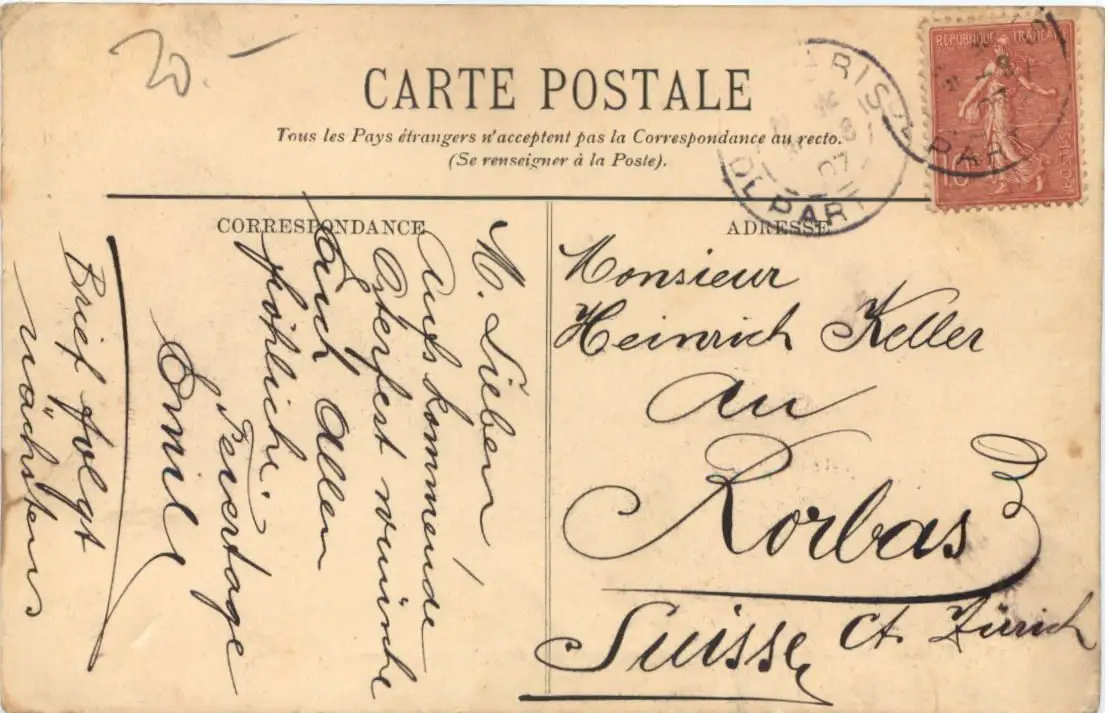 20.-
CARTE POSTALE
Tous les Pays étrangers n'acceptent pas la Correspondance au recto.
(Se renseigner à la Poste).
REPUBLIQUE FRANÇAISE
10
POSTES
PARIS
DEPART
8
07
CORRESPONDANCE
M. Lieben!
Aufs kommende
Osterfest wünsche
Euch Allen
fröhliche
Feiertage
Emil
Brief folgt
nächstens
ADRESSE
Monsieur
Heinrich Keller
au
Rorbas
Suisse Ct. Zürich